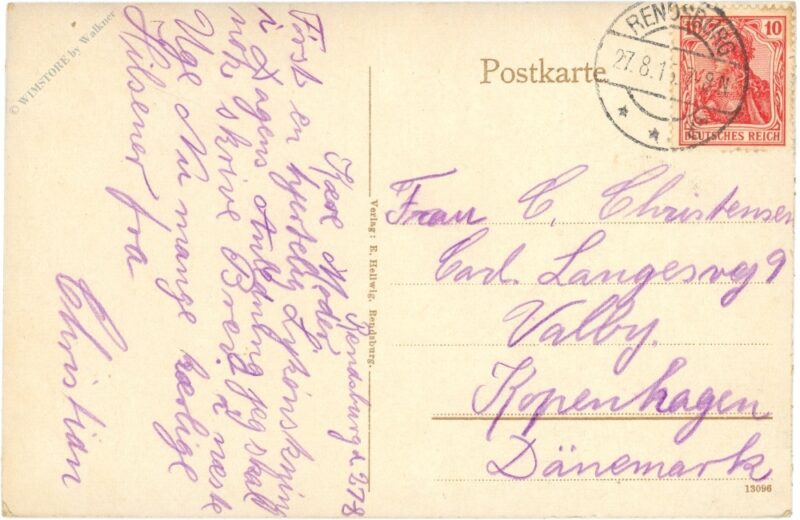 © WIMSTORE by Walkner
Postkarte
RENDSBURG
27.8.1
8N
10
DEUTSCHES REICH
Rendsburg d. 27-8
Kære Moder.
Først en hjertelig Lykønskning
i Dagens Anledning jeg skal
nok skrive Brev i næste
Uge Nu mange kærlige
Hilsener fra
Christian
Verlag: E. Hellwig, Rendsburg.
Frau C. Christensen
Carl Langesvej 9
Valby.
Kopenhagen
Dänemark
13096